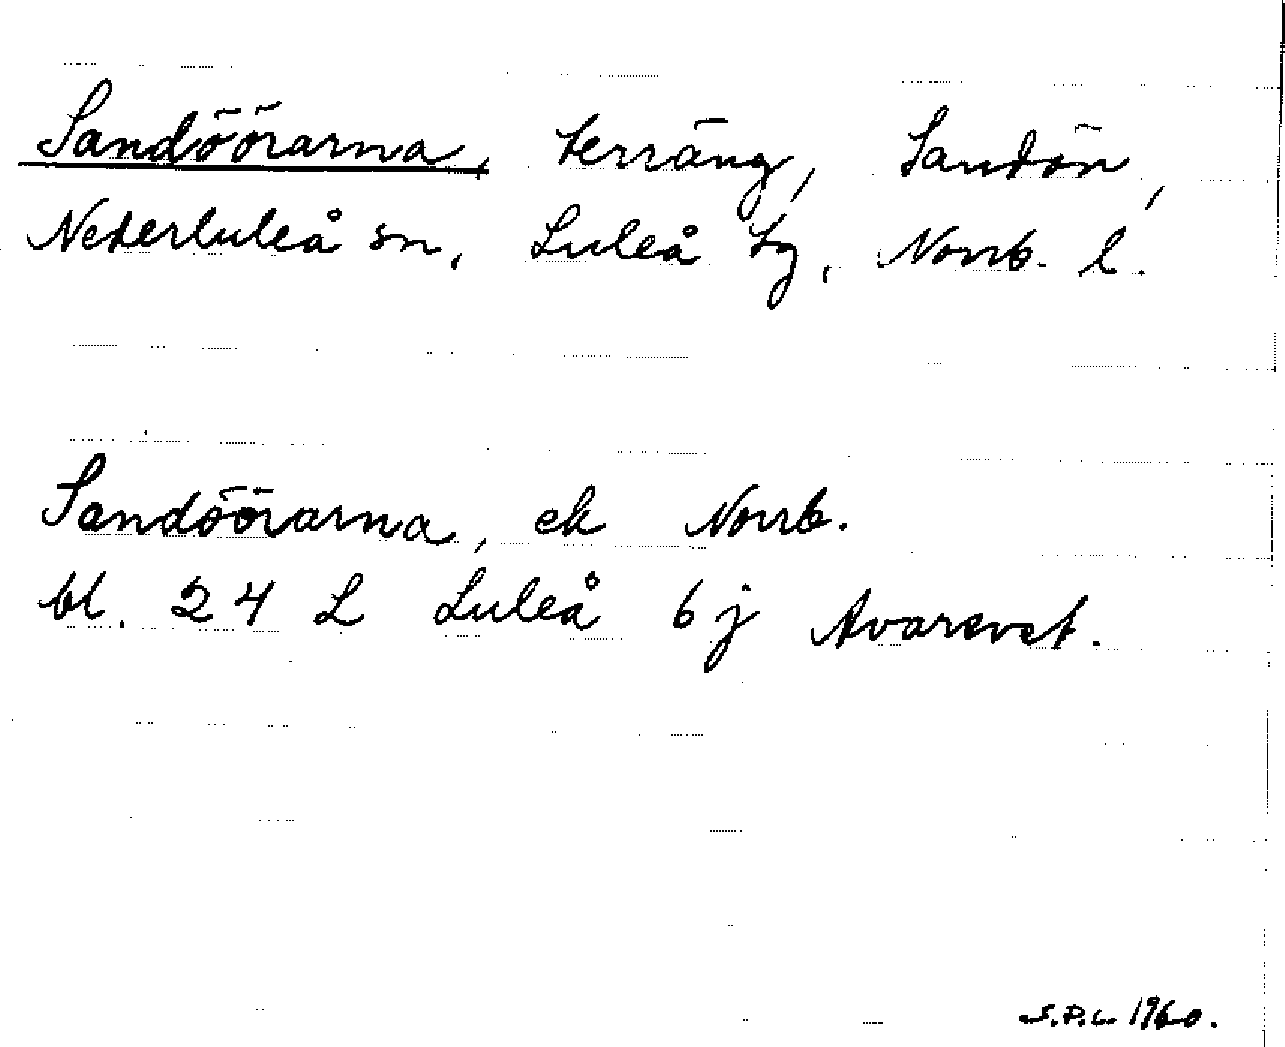 Sandöörarna, terräng, Sandön,
Nederluleå sn, Luleå tg, Norrb. l.
Sandöörarna, ek Norrb.
bl. 24 L Luleå 6j Avarevet.
S.P.L 1960.